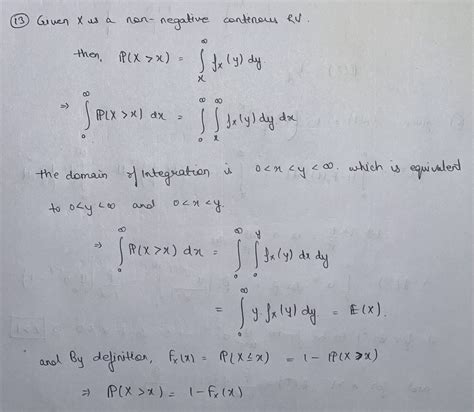 (13) Given X is a non-negative continous RV.
then, P(X > x) = ∫_x^∞ f_X(y) dy.
⇒ ∫_0^∞ P(X > x) dx = ∫_0^∞ ∫_x^∞ f_X(y) dy dx
the domain of Integration is 0 < x < y < ∞. which is equivalent
to 0 < y < ∞ and 0 < x < y.
⇒ ∫_0^∞ P(X > x) dx = ∫_0^∞ ∫_0^y f_X(y) dx dy
= ∫_0^∞ y. f_X(y) dy = E(X).
and By definition, F_X(x) = P(X ≤ x) = 1 - P(X > x)
⇒ P(X > x) = 1 - F_X(x)